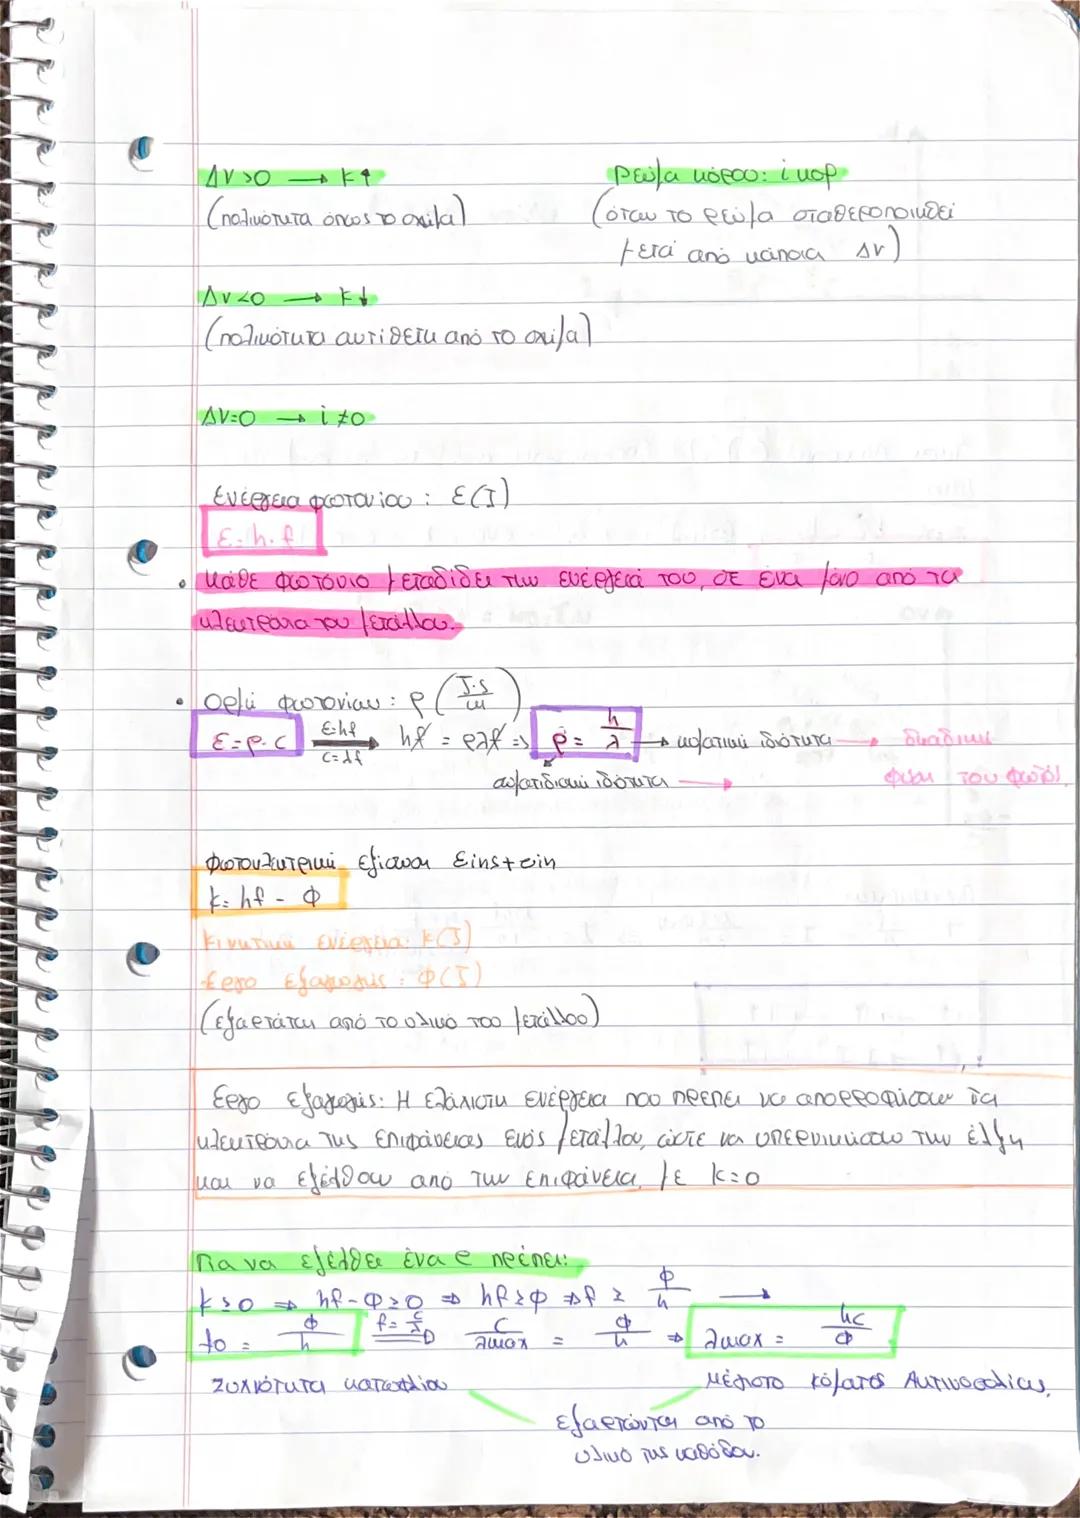 ΔV>0 → K↑
(πολικότητα όπως το σχήμα)
ρεύμα κόρου: i κορ
(όταν το ρεύμα σταθεροποιηθεί
μετά από κάποια ΔV)
ΔV<0 → K↓
(πολικότητα αντίθετη από το σχήμα)
ΔV=0 → i≠0
Ενέργεια φωτονίου: E(J)
E=h·f
• κάθε φωτόνιο μεταδίδει την ενέργειά του, σε ένα μόνο από τα
ηλεκτρόνια του μετάλλου.
• Ορμή φωτονίων: p (J·s/m)
E=p·c E=hf c=λf → hf = pλf ⇒ p = h/λ → κυματική ιδιότητα → δυαδική
σωματιδιακή ιδιότητα → φύση του φωτός.
Φωτοηλεκτρική εξίσωση Einstein
K= hf - Φ
Κινητική ενέργεια: K(J)
Έργο εξαγωγής: Φ(J)
(εξαρτάται από το υλικό του μετάλλου)
Έργο εξαγωγής: Η ελάχιστη ενέργεια που πρέπει να απορροφήσουν τα
ηλεκτρόνια της επιφάνειας ενός μετάλλου, ώστε να υπερνικήσουν την έλξη
και να εξέλθουν από την επιφάνεια, με K=0
Για να εξέλθει ένα e πρέπει:
K≥0 ⇒ hf-Φ≥0 ⇒ hf≥Φ ⇒ f ≥ Φ/h →
fo = Φ/h f=c/λ ⇒ c/λmax = Φ/h ⇒ λmax = hc/Φ
Συχνότητα κατωφλίου
Μέγιστο κύματος Ακτινοβολίας.
εξαρτώνται από το
υλικό της καθόδου.